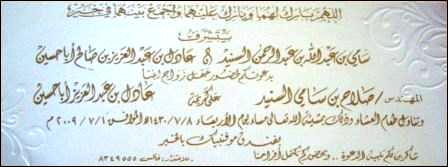 اللهم بارك لهما وبارك عليهما واجمع بينهما في خير
يتشرف
سامي بن عبدالله بن عبدالرحمن السنيد و عادل بن عبدالعزيز بن صالح أباحسين
بدعوتكم لحضور حفل زواج
المهندس / صلاح بن سامي السنيد على كريمة عادل بن عبدالعزيز أباحسين
وتناول طعام العشاء وذلك بمشيئة الله تعالى مساء يوم الأربعاء ١٤٣٠/٧/٨هـ الموافق ٢٠٠٩/٧/١م
بفندق موفنبيك بالخبر
شاكرين لكم تلبية الدعوة وبحضوركم تكتمل أفراحنا فاكس ٨٣٤٩٥٥٥